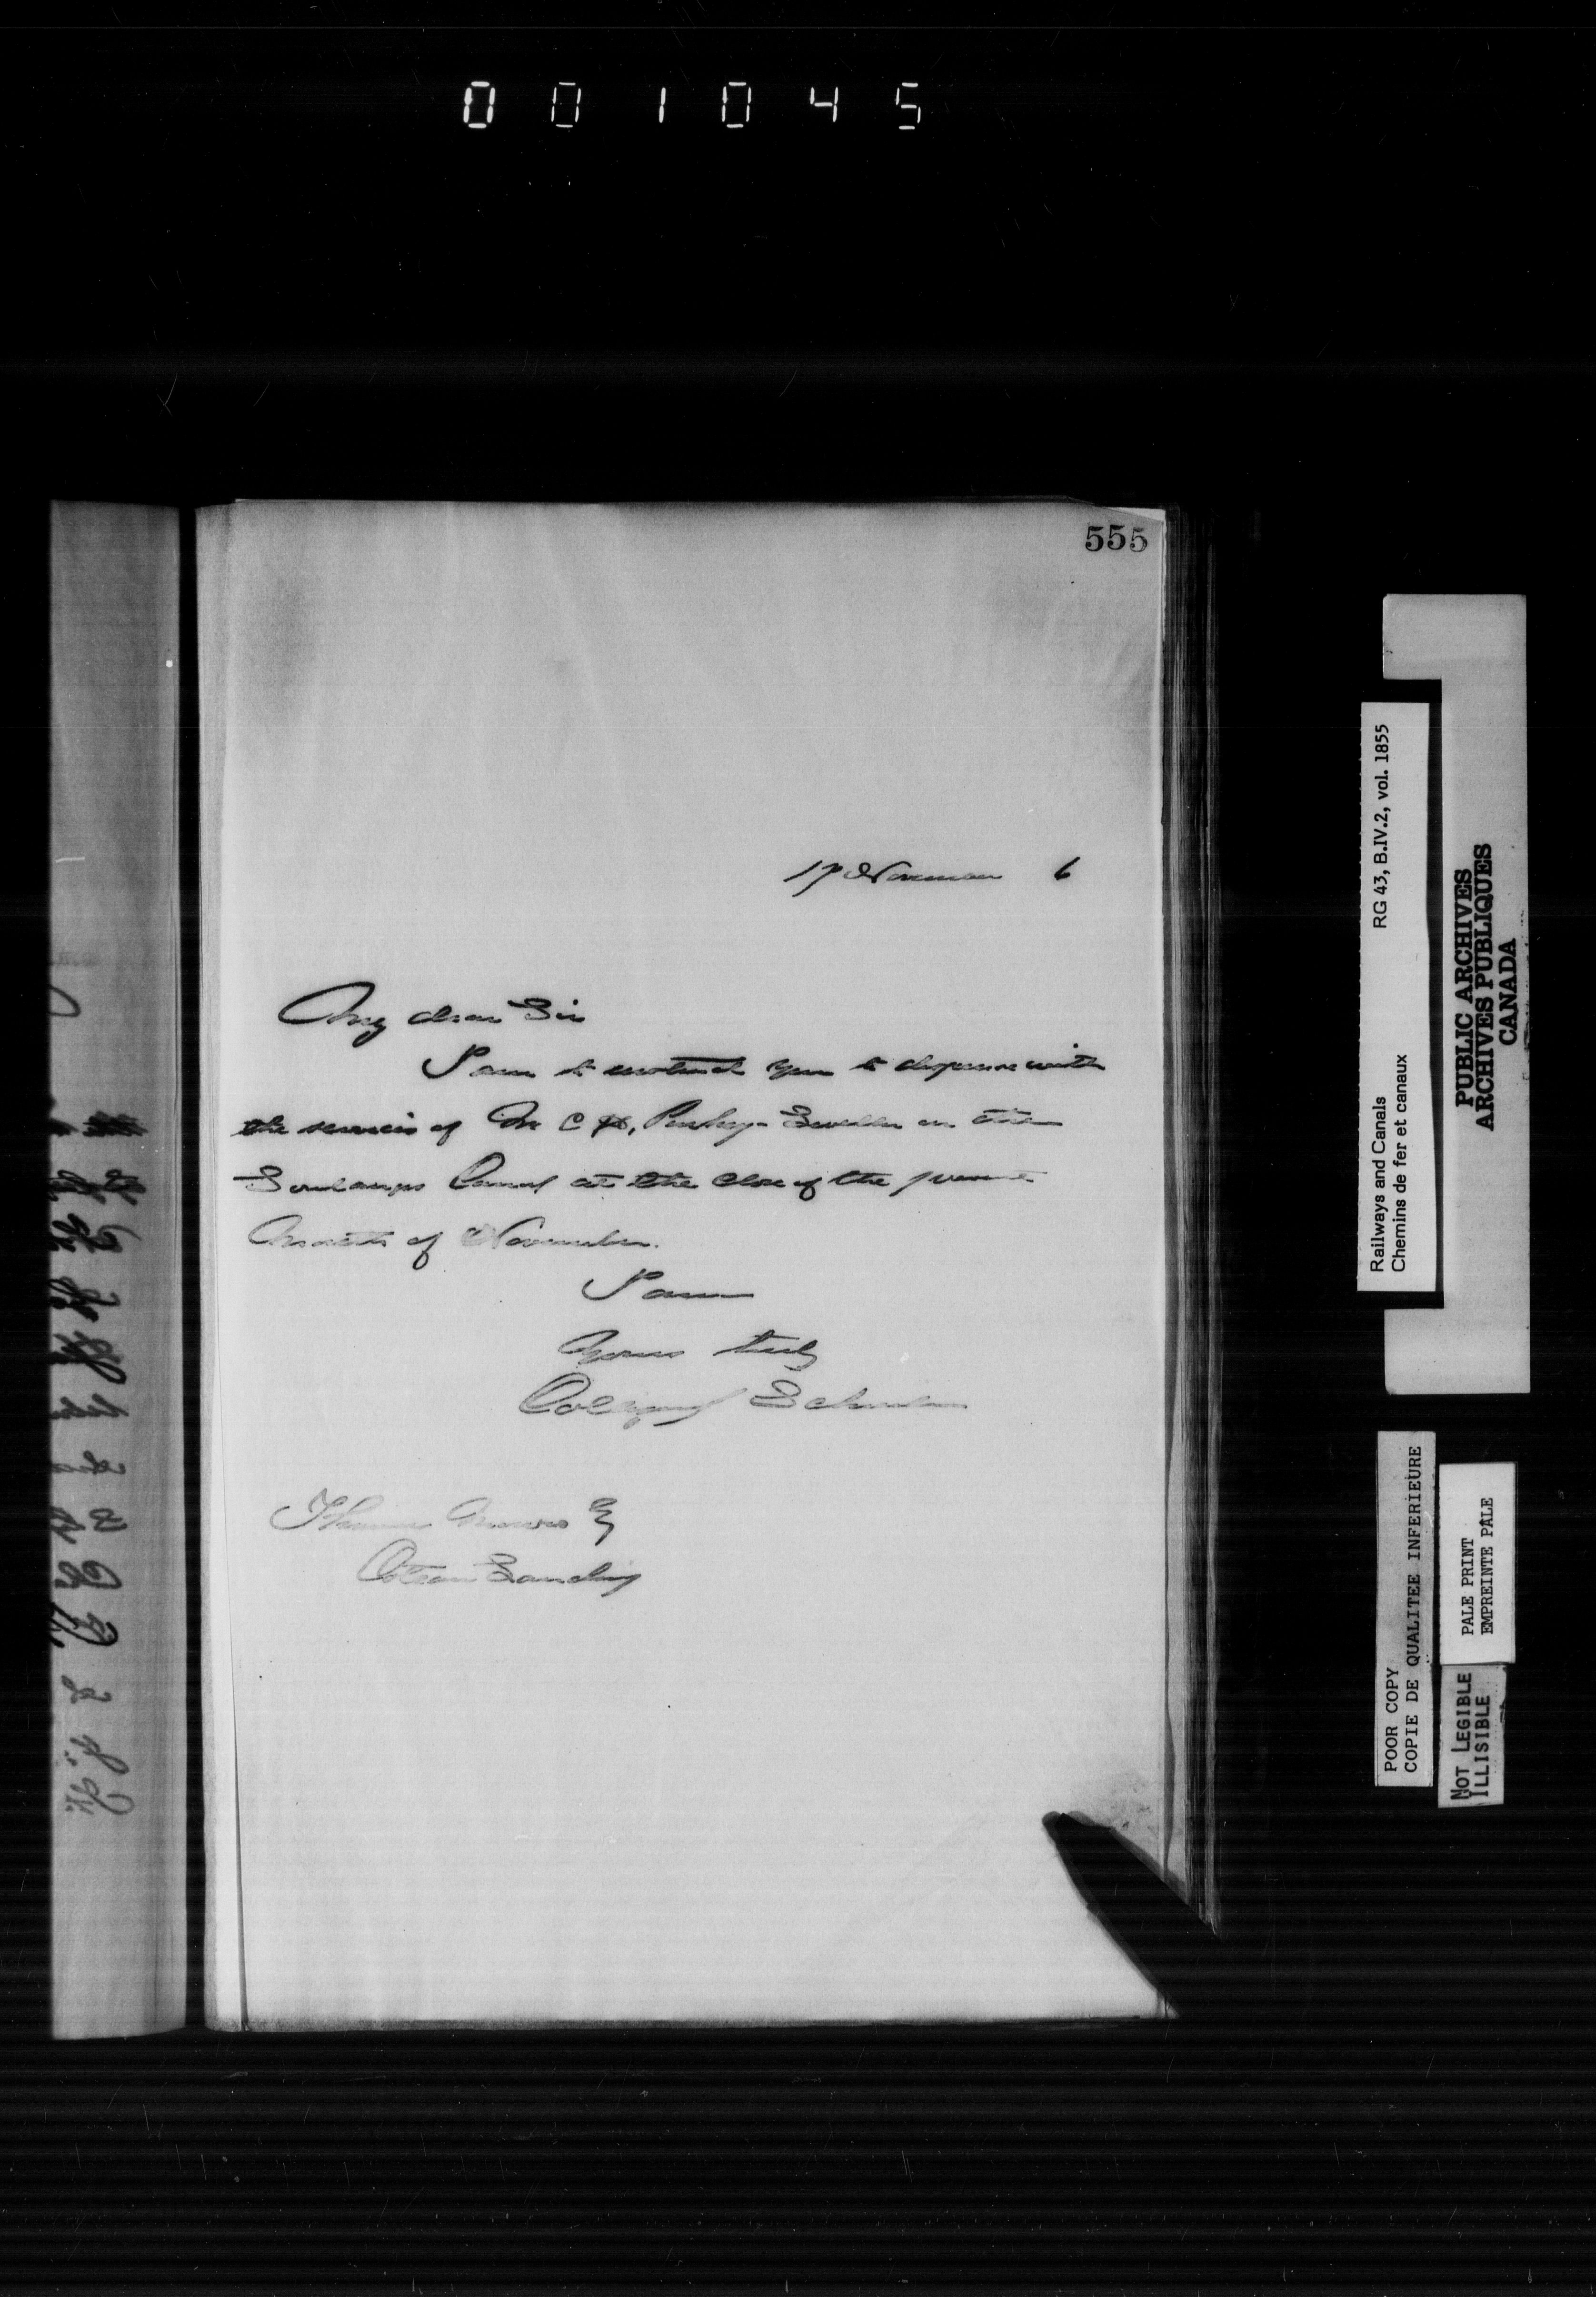 001045
555
17 November 6
My dear Sir
I am to instruct you to dispense with
the services of Mr C
Soulanges Canal at the close of the present
Month of November.
I am
Yours truly
Collingwood Schreiber
Thomas Monro Esq
Coteau Landing
Railways and Canals RG 43, B.IV.2, vol. 1855
Chemins de fer et canaux
PUBLIC ARCHIVES
ARCHIVES PUBLIQUES
CANADA
POOR COPY
COPIE DE QUALITEE INFERIEURE
PALE PRINT
EMPREINTE PALE
NOT LEGIBLE
ILLISIBLE